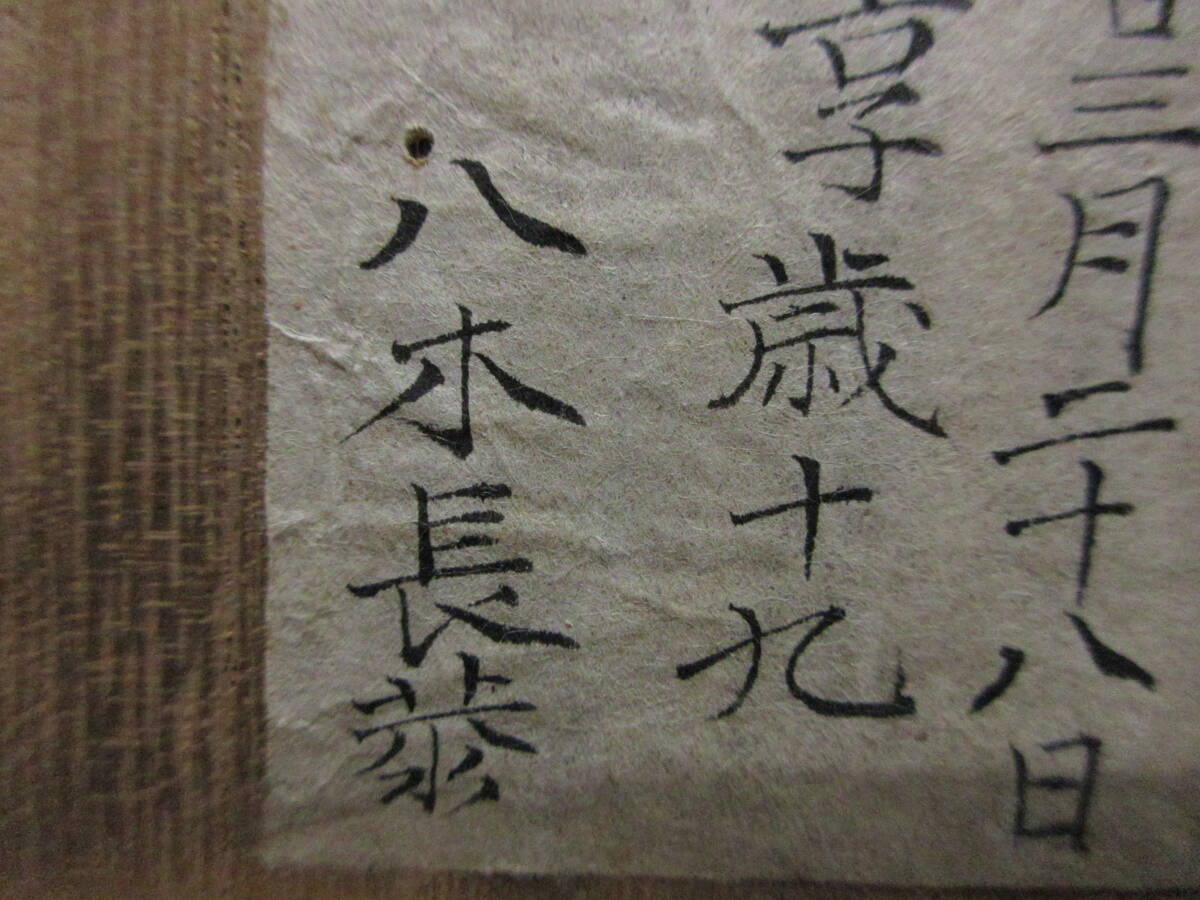 三月二十八日
享歳十九
八木長恭